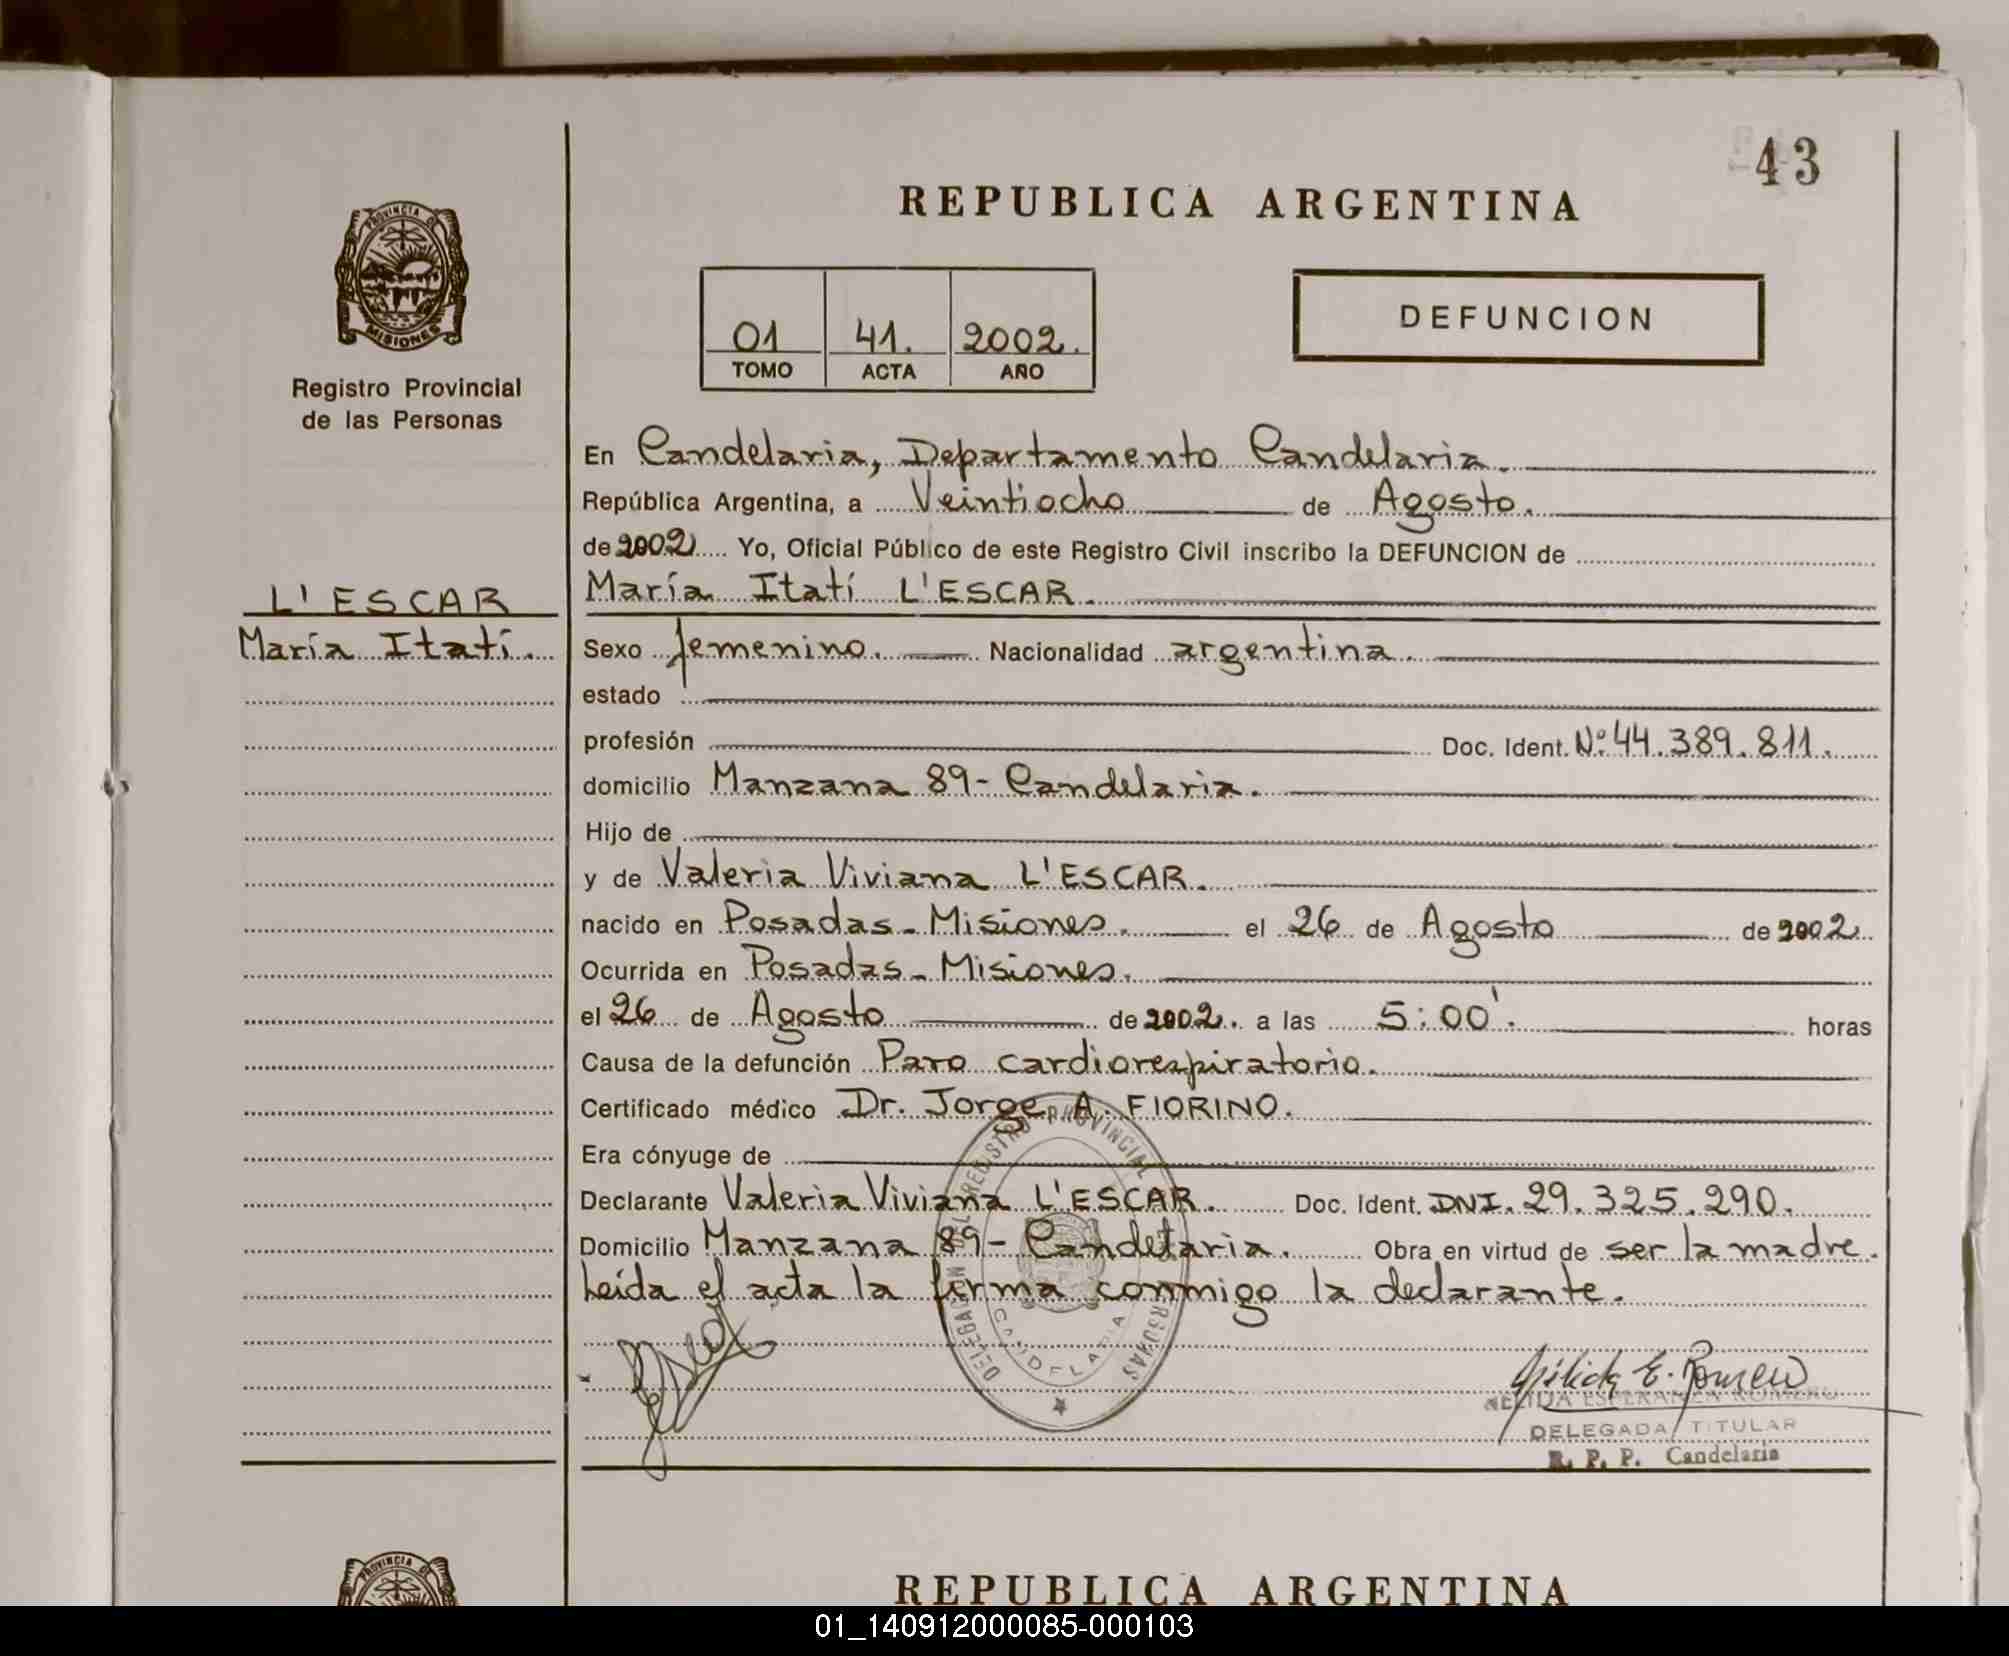 43
REPUBLICA ARGENTINA
PROVINCIA DE
MISIONES
Registro Provincial
de las Personas
01 41. 2002.
TOMO ACTA AÑO
DEFUNCION
En Candelaria, Departamento Candelaria.
República Argentina, a Veintiocho de Agosto.
de 2002 Yo, Oficial Público de este Registro Civil inscribo la DEFUNCION de
L'ESCAR
María Itatí.
María Itatí L'ESCAR.
Sexo femenino. Nacionalidad argentina.
estado
profesión Doc. Ident. Nº 44.389.811.
domicilio Manzana 89- Candelaria.
Hijo de
y de Valeria Viviana L'ESCAR.
nacido en Posadas - Misiones. el 26 de Agosto de 2002.
Ocurrida en Posadas - Misiones.
el 26 de Agosto de 2002. a las 5:00'. horas
Causa de la defunción Paro cardiorespiratorio.
Certificado médico Dr. Jorge A. FIORINO.
Era cónyuge de
Declarante Valeria Viviana L'ESCAR. Doc. Ident. DNI. 29.325.290.
Domicilio Manzana 89- Candelaria. Obra en virtud de ser la madre.
Leída el acta la firma conmigo la declarante.
DELEGACION DEL REGISTRO PROVINCIAL PERSONAS
CANDELARIA
Nélida E. Romero
NELIDA ESPERANZA ROMERO
DELEGADA TITULAR
R. P. P. Candelaria
PROVINCIA DE
REPUBLICA ARGENTINA
01_140912000085-000103